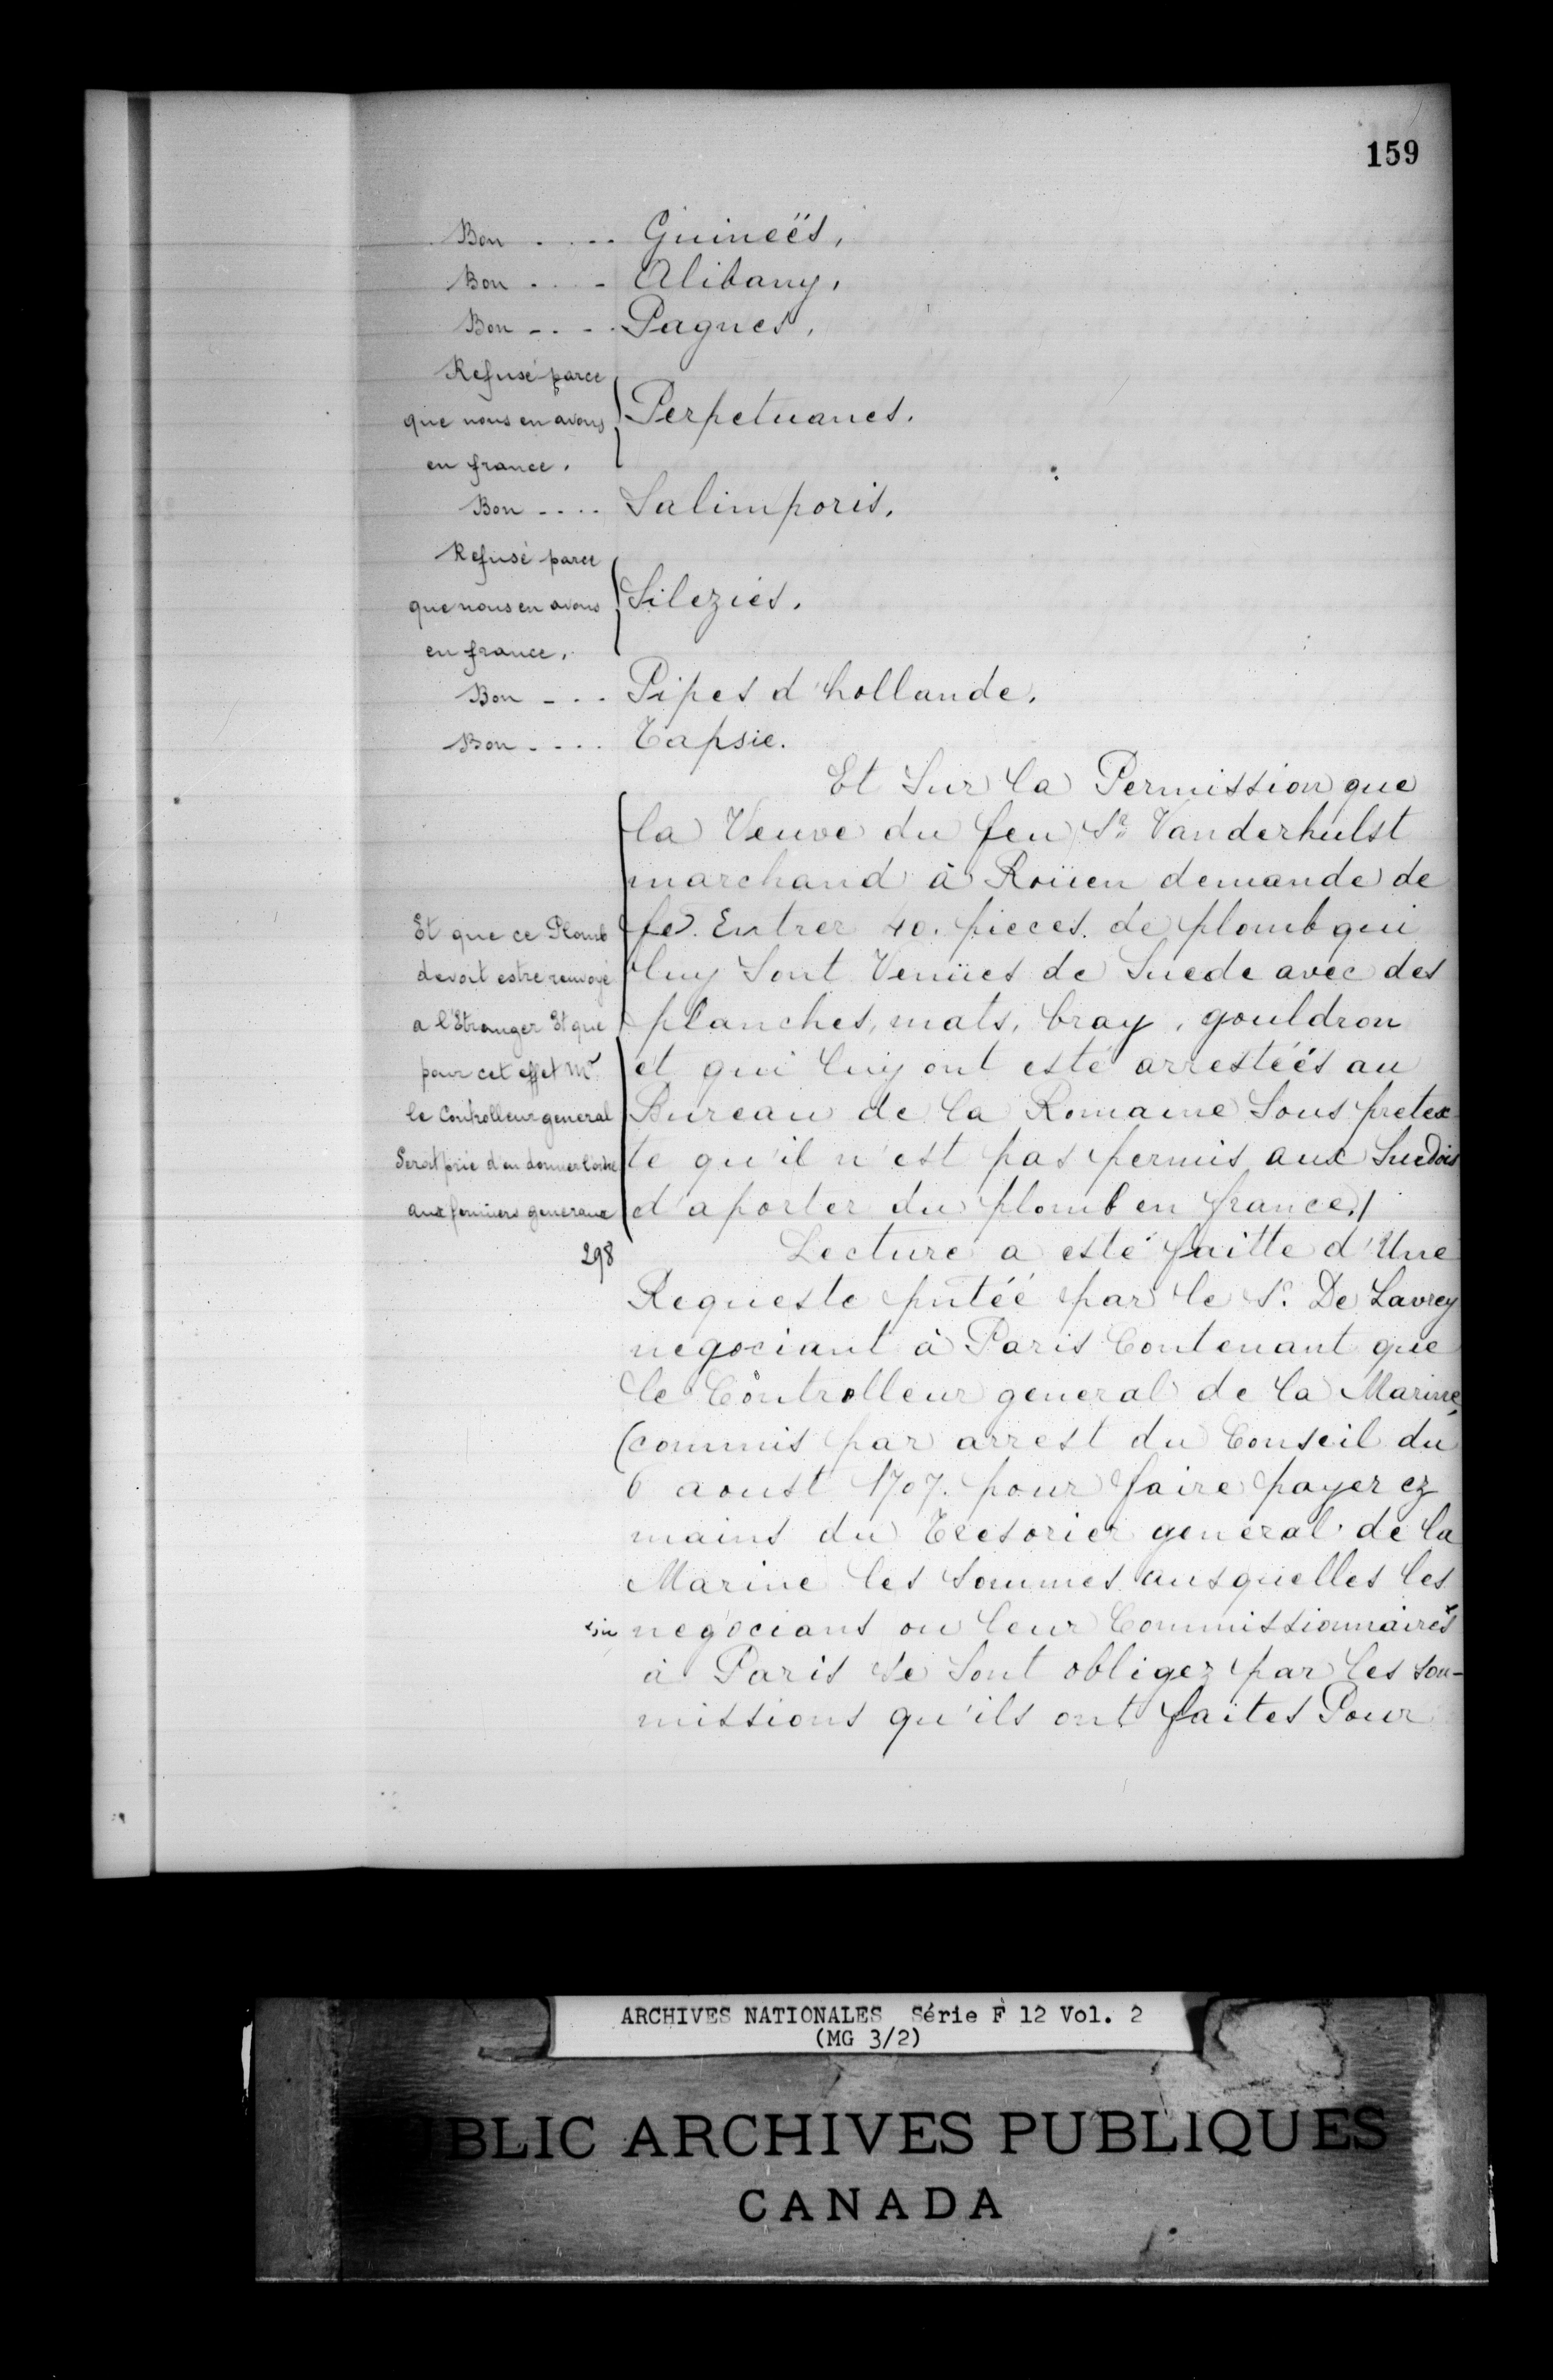 159
Bon . . . . Guineës,
Bon . . . - Alibany,
Bon - . . - Pagnes,
Refusé parce
que nous en avons Perpetuanes.
en france.
Bon - . . . Salimporis.
Refusé parce
que nous en avons Siléziés.
en france.
Bon - . . Pipes d'hollande.
Bon . . . . Tapsie.
Et Sur la Permission que
la Veuve du feu Sr. Vanderhulst
marchand à Roüen demande de
fe. Entrer 40. pieces. de plomb qui
luy Sont Venües de Suede avec des
planches, mats, bray, gouldron
et qui luy ont esté arrestéés au
Bureau de la Romaine Sous pretex-
te qu'il n'est pas permis aux Suedois
d'aporter du plomb en france./
Et que ce Plomb
devoit estre renvoyé
a l'Etranger Et que
pour cet effet Mr
le Controlleur general
Seroit prié d'en donner l'ordre
aux fermiers generaux
298
Lecture a esté faitte d'Une
Requeste pntéé par le Sr. De Lavrey
negociant à Paris Contenant que
le Controlleur general de la Marine,
(commis par arrest du Conseil du
6 aoust 1707. pour faire payer ez
mains du Tresorier general de la
Marine les Sommes ausquelles les
sic negocians ou leur Commissionnaires
à Paris se Sont obligez par les sou-
missions qu'ils ont faites Pour
ARCHIVES NATIONALES Série F 12 Vol. 2
(MG 3/2)
BLIC ARCHIVES PUBLIQUES
CANADA